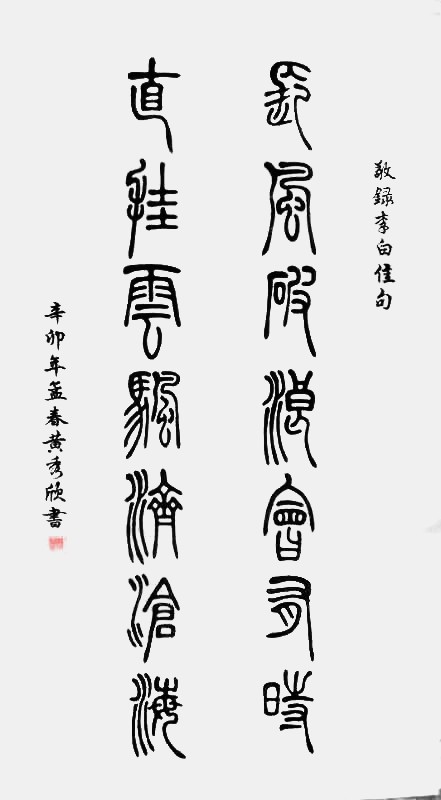 敬錄李白佳句
長風破浪會有時
直挂雲颿濟滄海
辛卯年孟春黄秀欣書